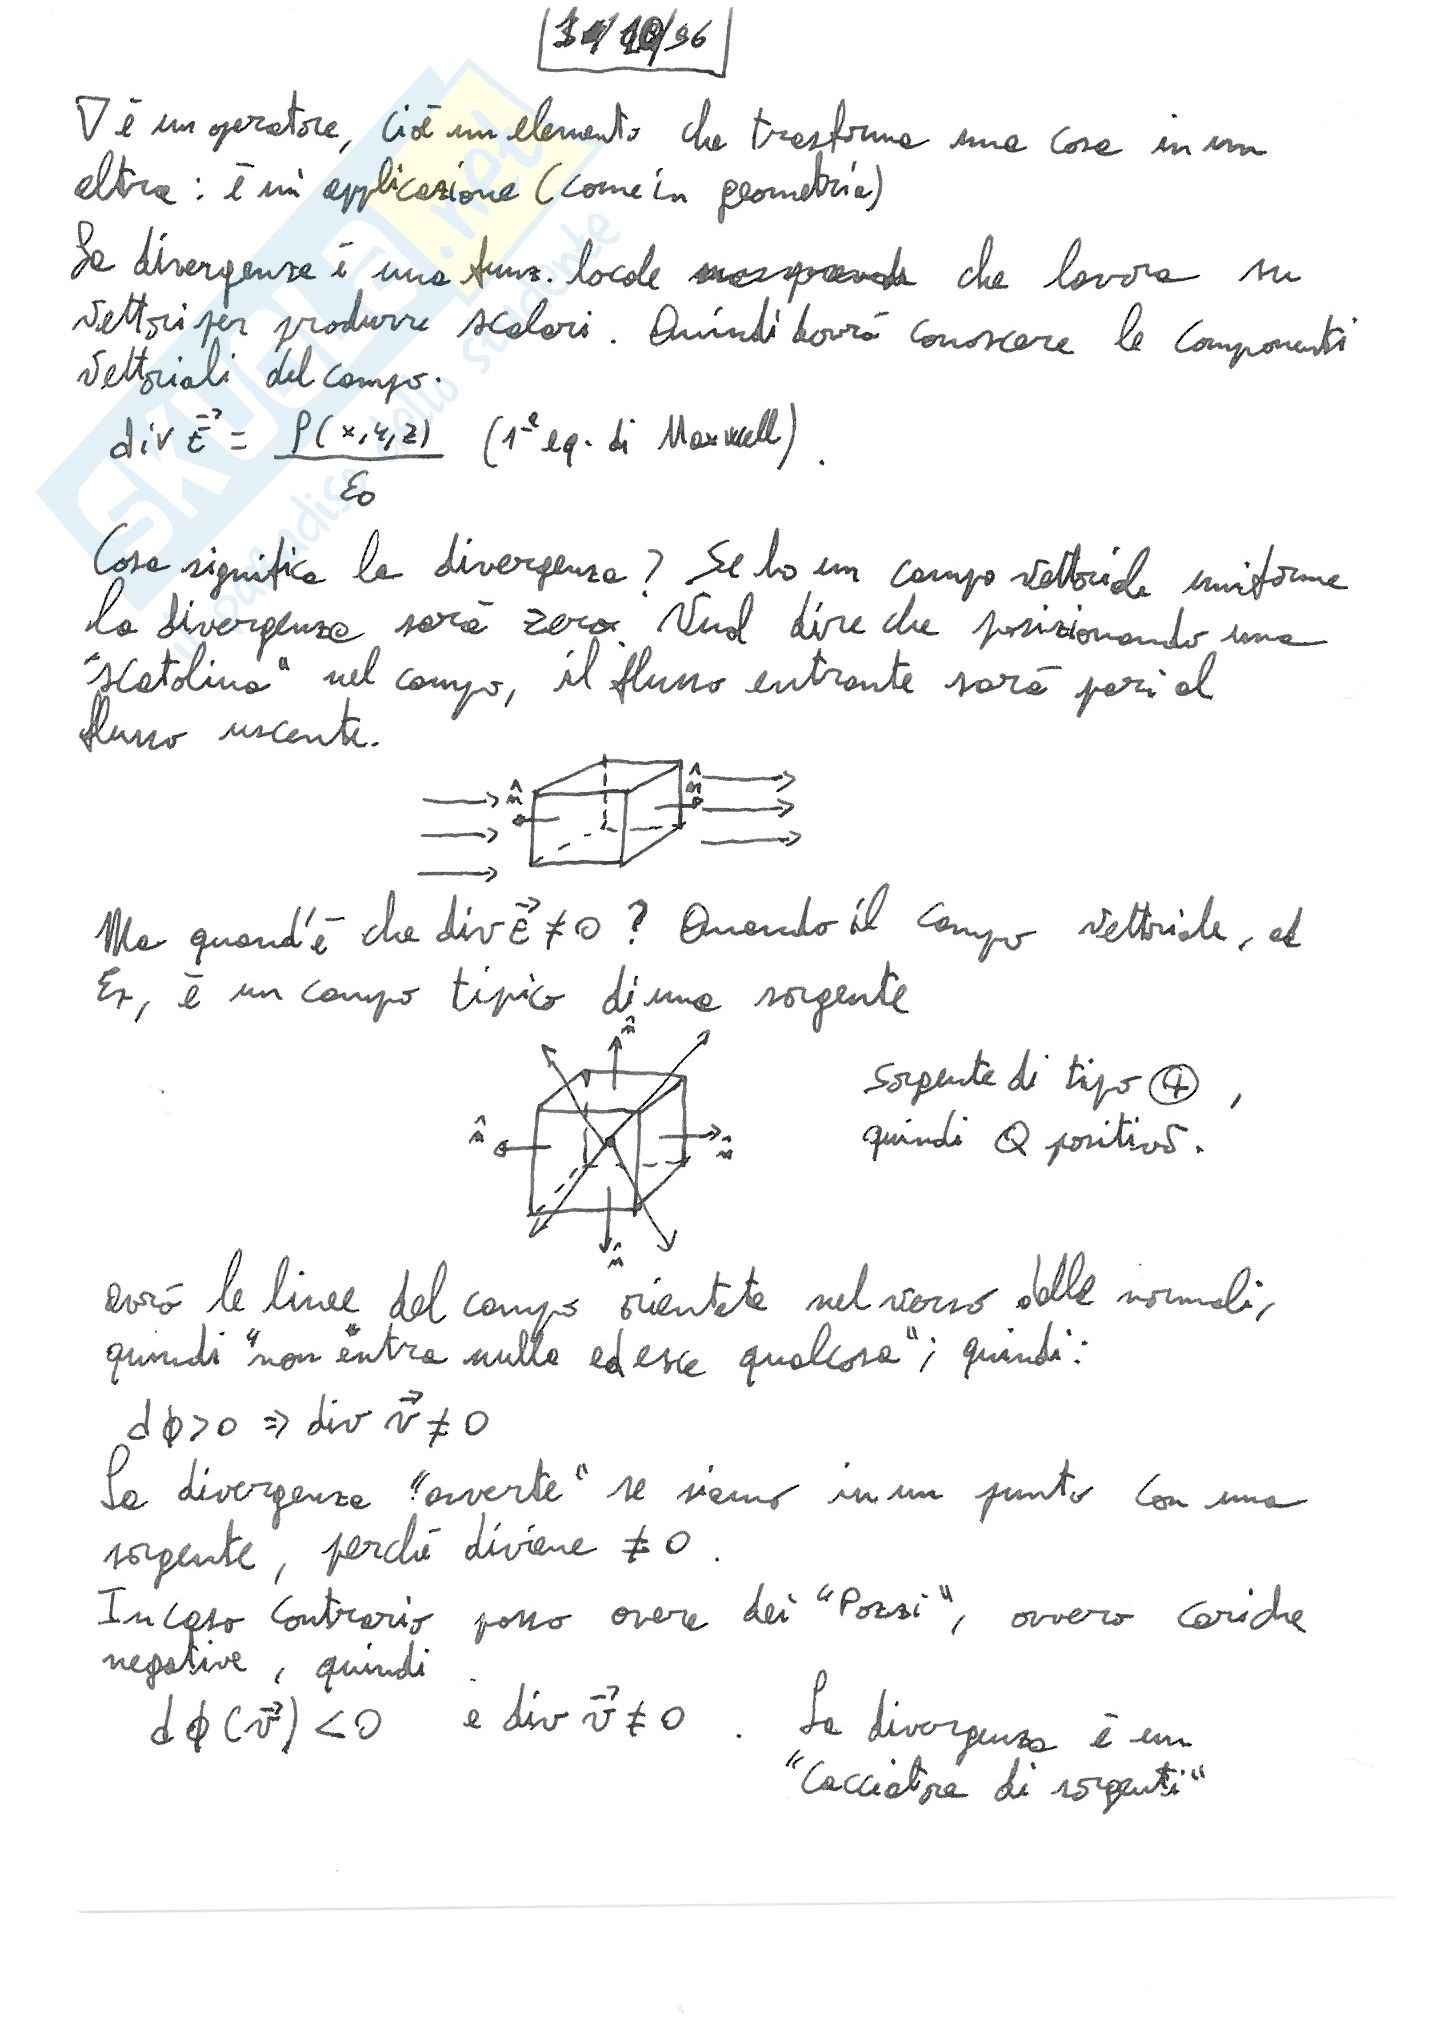 ∇ è un operatore, cioè un elemento che trasforma una cosa in un
altra: è un' applicazione (come in geometria)
La divergenza è una funz. locale che lavora su
vettori per produrre scalari. Quindi dovrà conoscere le componenti
vettoriali del campo.
div E⃗ = ρ(x,y,z) / ε₀ (1ª eq. di Maxwell).
Cosa significa la divergenza? Se ho un campo vettoriale uniforme
la divergenza sarà zero. Vuol dire che posizionando una
"scatolina" nel campo, il flusso entrante sarà pari al
flusso uscente.
n̂ n̂
Ma quand'è che div E⃗ ≠ 0 ? Quando il campo vettoriale, ad
Es, è un campo tipico di una sorgente
n̂
Sorgente di tipo ⊕,
n̂ n̂
quindi Q positivo.
n̂
avrò le linee del campo orientate nel verso delle normali,
quindi "non entra nulla ed esce qualcosa"; quindi:
dϕ>0 ⇒ div v⃗ ≠ 0
La divergenza "avverte" se siamo in un punto con una
sorgente, perchè diviene ≠ 0.
In caso contrario posso avere dei "Pozzi", ovvero cariche
negative, quindi
dϕ(v⃗) < 0 e div v⃗ ≠ 0. La divergenza è un
"Cacciatore di sorgenti"
SKUOLA.net
il paradiso dello studente